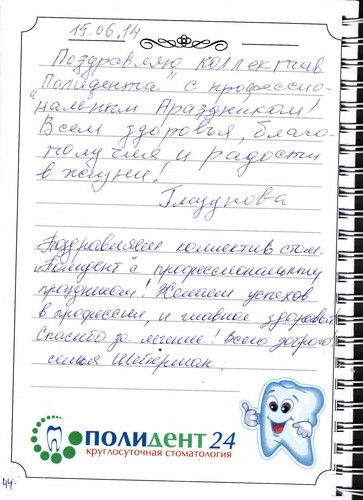 15.06.14
Поздравляю коллектив
"Полидента" с профессио-
нальным праздником!
Всем здоровья, благо-
получия и радости
в жизни!
Глазунова
Поздравляем коллектив стом.
"Полидент" с профессиональным
праздником! Желаем успехов
в профессии, и главное здоровья!
Спасибо за лечение! Всего доброго!
семья Шейкерман.
ПОЛИДЕНТ 24
круглосуточная стоматология
44.